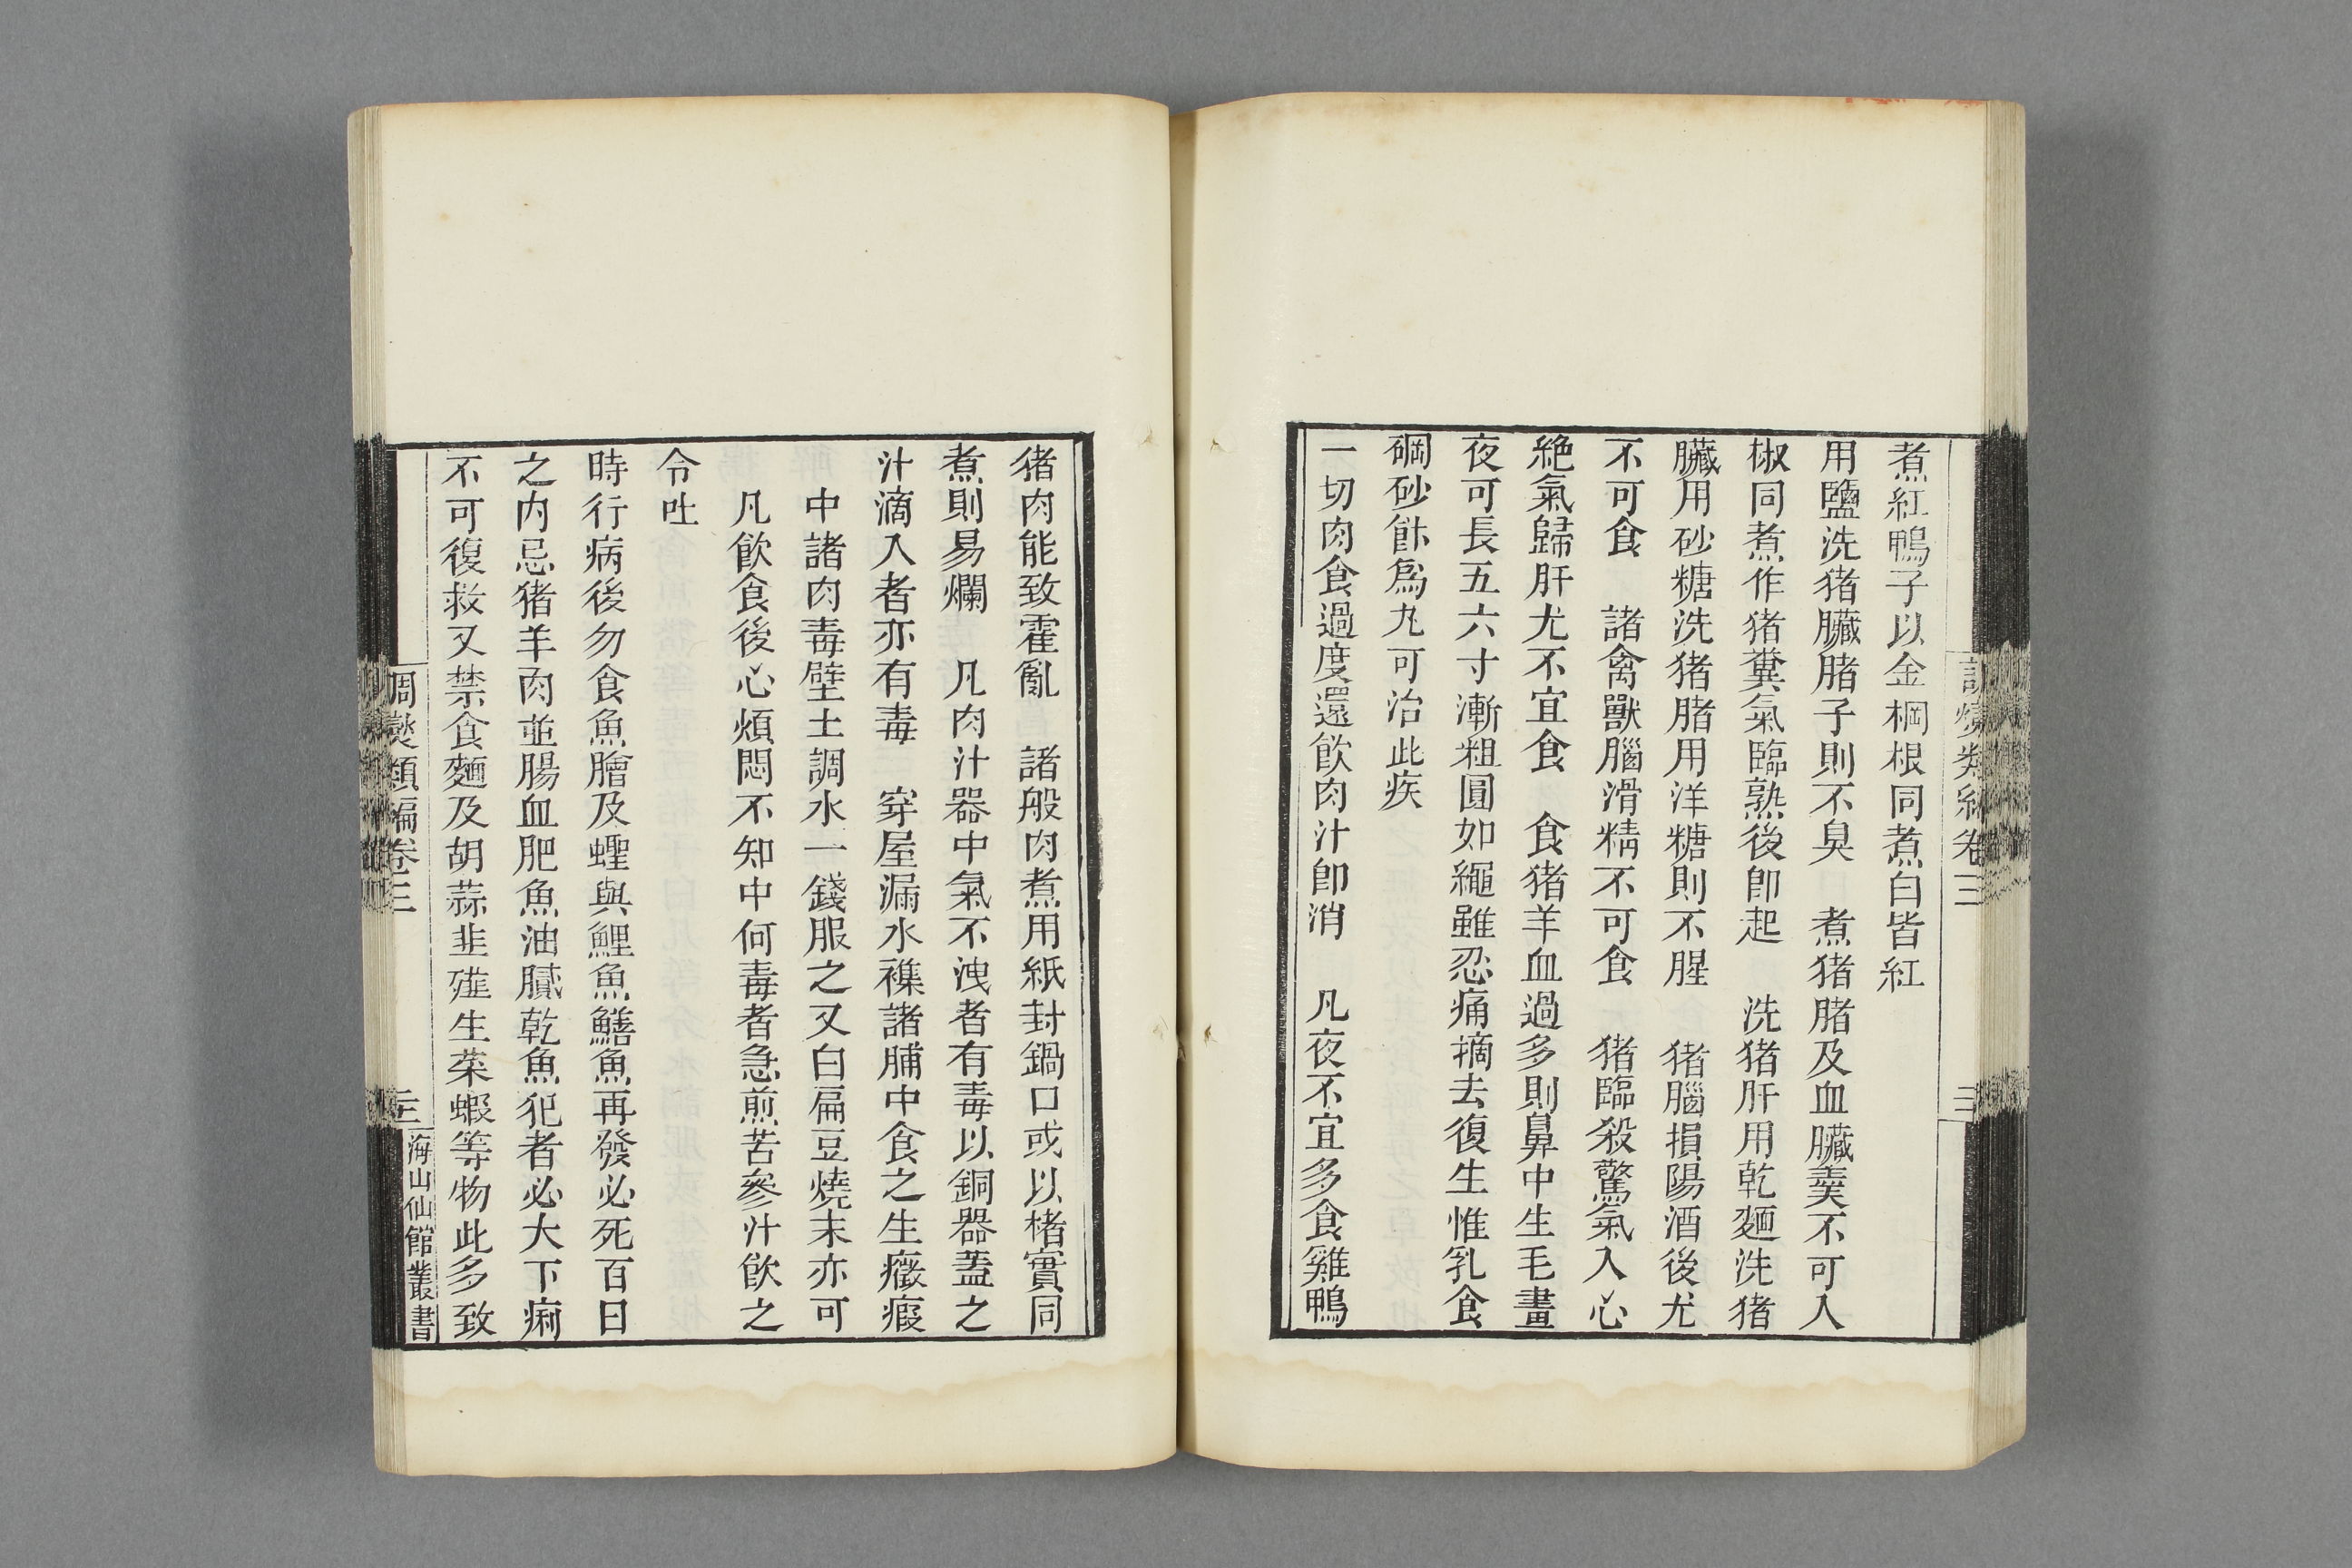 調燮類編卷三
三
煮紅鴨子以金棡根同煮白皆紅
用鹽洗猪臟腤子則不臭　煮猪腤及血臟羹不可入
椒同煮作猪糞氣臨熟後卽起　洗猪肝用乾麵洗猪
臟用砂糖洗猪腤用洋糖則不腥　猪腦損陽酒後尤
不可食　諸禽獸腦滑精不可食　猪臨殺驚氣入心
絶氣歸肝尤不宜食　食猪羊血過多則鼻中生毛晝
夜可長五六寸漸粗圓如繩雖忍痛摘去復生惟乳食
碙砂餅爲丸可治此疾
一切肉食過度還飮肉汁卽消　凡夜不宜多食雞鴨
猪肉能致霍亂　諸般肉煮用紙封鍋口或以楮實同
煮則易爛　凡肉汁器中氣不洩者有毒以銅器蓋之
汁滴入者亦有毒　穿屋漏水襍諸脯中食之生癥瘕
中諸肉毒壁土調水一錢服之又白扁豆燒末亦可
凡飮食後心煩悶不知中何毒者急煎苦參汁飮之
令吐
時行病後勿食魚膾及蟶與鯉魚鱔魚再發必死百日
之内忌猪羊肉並腸血肥魚油膩乾魚犯者必大下痢
不可復救又禁食麵及胡蒜韭薤生菜蝦等物此多致
調燮類編卷三
三
海山仙館叢書